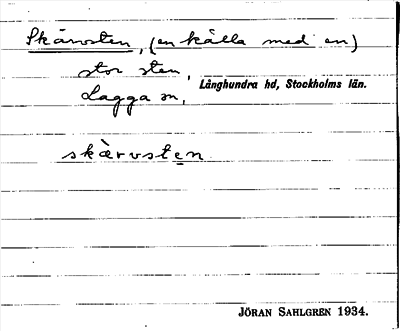 Skärvsten, (en källa med en)
stor sten,
Lagga sn, Långhundra hd, Stockholms län.
skὰrvsten
JÖRAN SAHLGREN 1934.